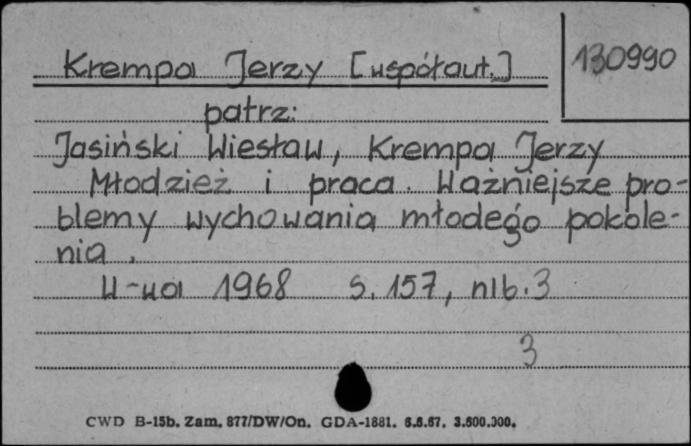 Krempa Jerzy [współaut.]
130990
patrz:
Jasiński Wiesław, Krempa Jerzy
Młodzież i praca. Ważniejsze pro-
blemy wychowania młodego pokole-
nia.
W-wa 1968 s. 157, nlb. 3
3
CWD B-15b. Zam. 877/DW/On. GDA-1881. 6.6.67. 3.600.000.